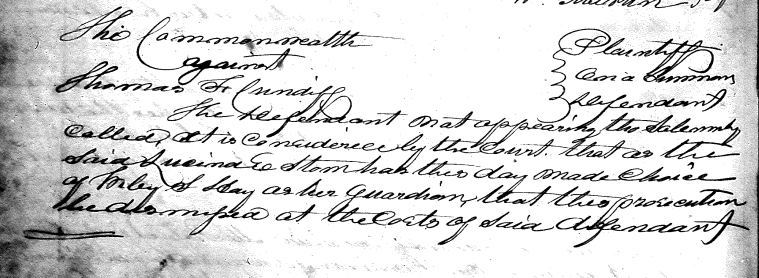 The Commonwealth Plaintiff
against On a Summons
Thomas F Cundiff Defendant
The Defendant not appearing tho Solemnly
Called, it is considered by the Court that as the
Said Lucinda E Stom has this day made Choice
of S Hay as her Guardian, that this prosecution
be dismissed at the Costs of Said defendant